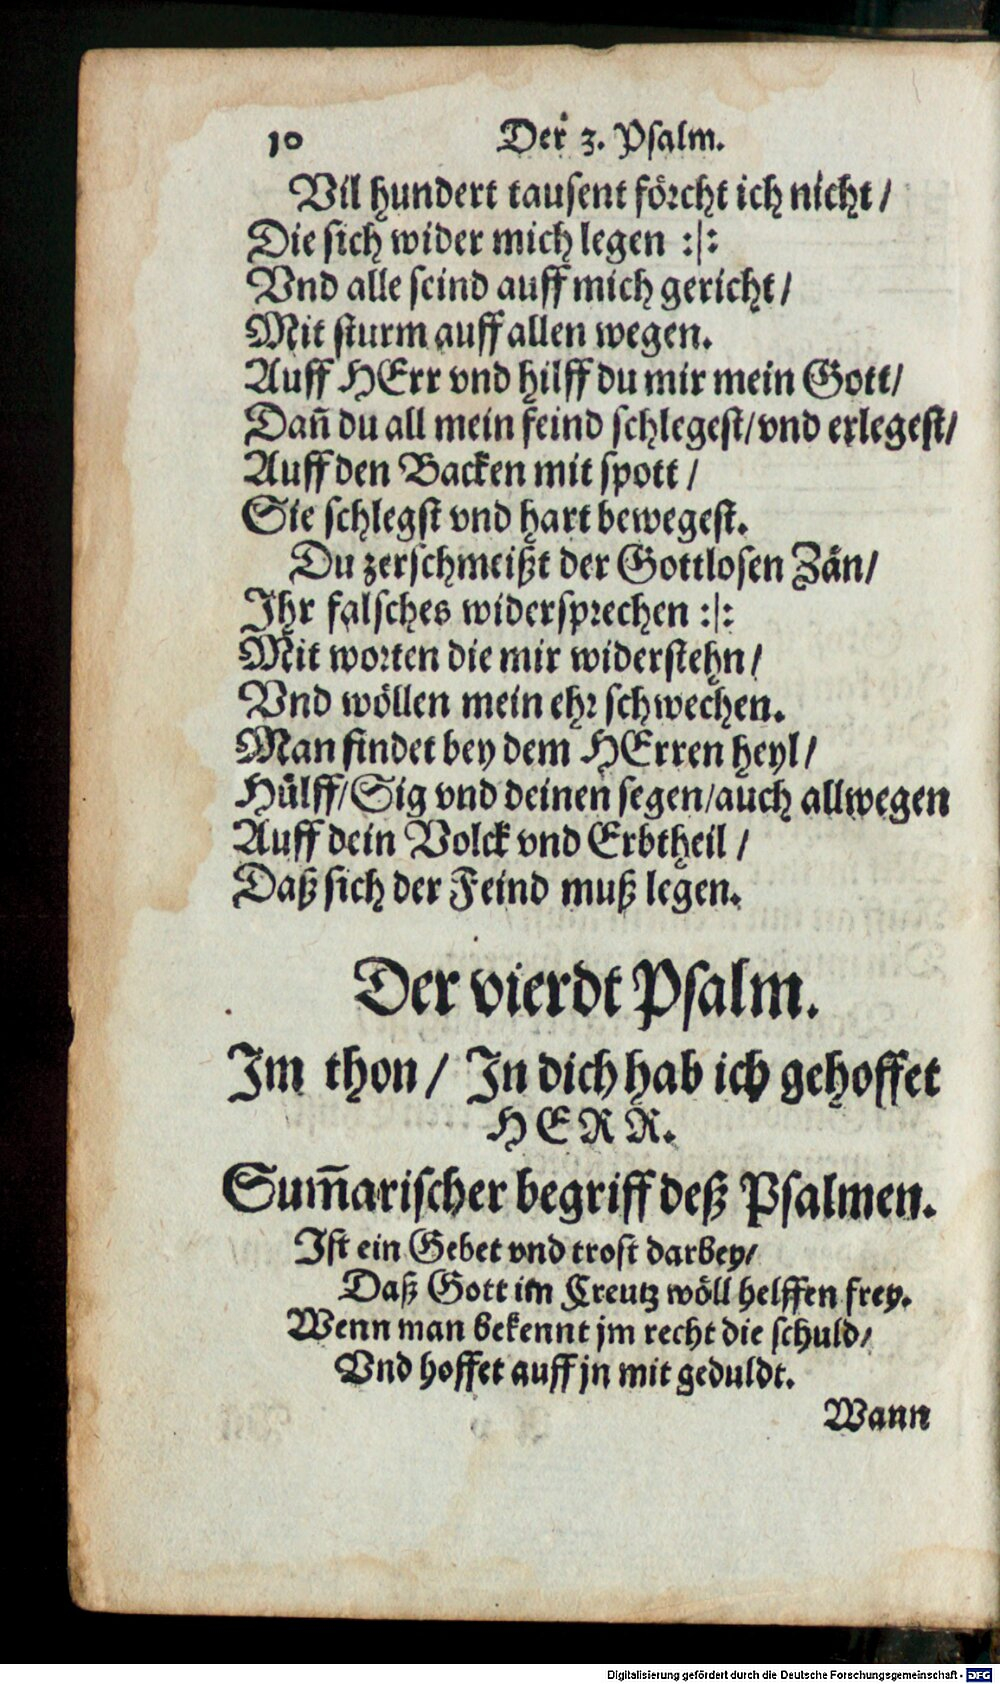 10 Der 3. Psalm.
Vil hundert tausent förcht ich nicht /
Die sich wider mich legen :|:
Vnd alle seind auff mich gericht /
Mit sturm auff allen wegen.
Auff HErr vnd hilff du mir mein Gott /
Dañ du all mein feind schlegest / vnd erlegest /
Auff den Backen mit spott /
Sie schlegst vnd hart bewegest.
Du zerschmeißt der Gottlosen Zän /
Ihr falsches widersprechen :|:
Mit worten die mir widerstehn /
Vnd wöllen mein ehr schwechen.
Man findet bey dem HErren heyl /
Hülff / Sig vnd deinen segen / auch allwegen
Auff dein Volck vnd Erbtheil /
Daß sich der Feind muß legen.
Der vierdt Psalm.
Im thon / In dich hab ich gehoffet
HERR.
Sum̄arischer begriff deß Psalmen.
Ist ein Gebet vnd trost darbey /
Daß Gott im Creutz wöll helffen frey.
Wenn man bekennt jm recht die schuld /
Vnd hoffet auff jn mit geduldt.
Wann
Digitalisierung gefördert durch die Deutsche Forschungsgemeinschaft - DFG